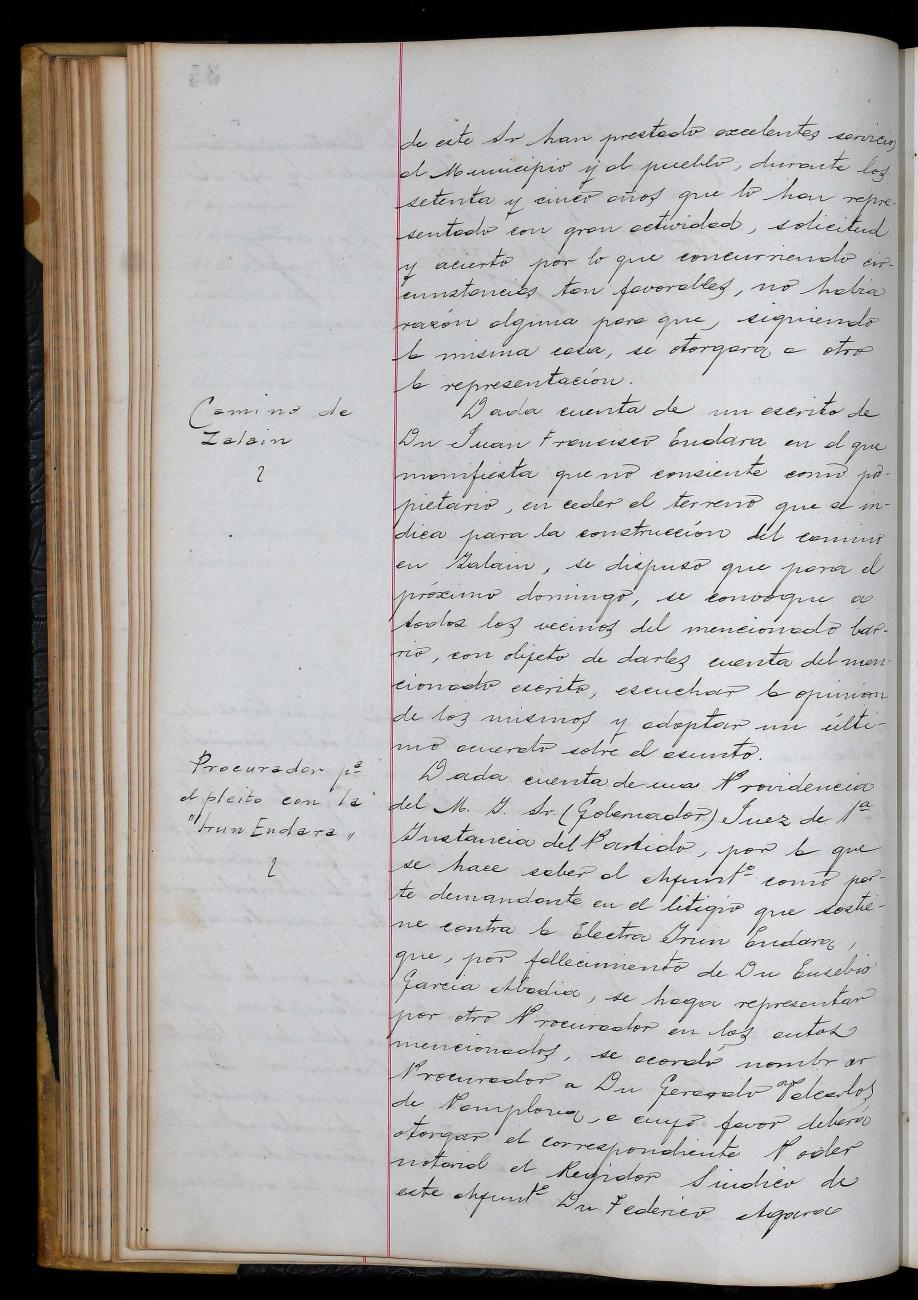 de este Sr han prestado excelentes servicios
al Municipio y al pueblo, durante los
setenta y cinco años que lo han repre-
sentado con gran actividad, solicitud
y acierto por lo que concurriendo cir-
cunstancias tan favorables, no habia
razón alguna para que, siguiendo
la misma casa, se otorgara a otro
la representación.
Camino de
Zalain
Dada cuenta de un escrito de
Dn Juan Francisco Endara en el que
manifiesta que no consiente como pro-
pietario, en ceder el terreno que se in-
dica para la construcción del camino
en Zalain, se dispuso que para el
próximo domingo, se convoque a
todos los vecinos del mencionado bar-
rio, con objeto de darles cuenta del men-
cionado escrito, escuchar la opinion
de los mismos y adoptar un últi-
mo acuerdo sobre el asunto.
Procurador pª
el pleito con la
"Irun Endara"
Dada cuenta de una Providencia
del M. I. Sr. (Gobernador) Juez de 1ª
Instancia del Partido, por la que
se hace saber al Ayuntº como par-
te demandante en el litigio que sostie-
ne contra la Electra Irun Endara,
que, por fallecimiento de Dn Eusebio
Garcia Abadia, se haga representar
por otro Procurador en los autos
mencionados, se acordó nombrar
Procurador a Dn Gerardo Valcarlos
de Pamplona, a cuyo favor deberá
otorgar el correspondiente Poder
notarial el Regidor Sindico de
este Ayuntº Dn Federico Agara